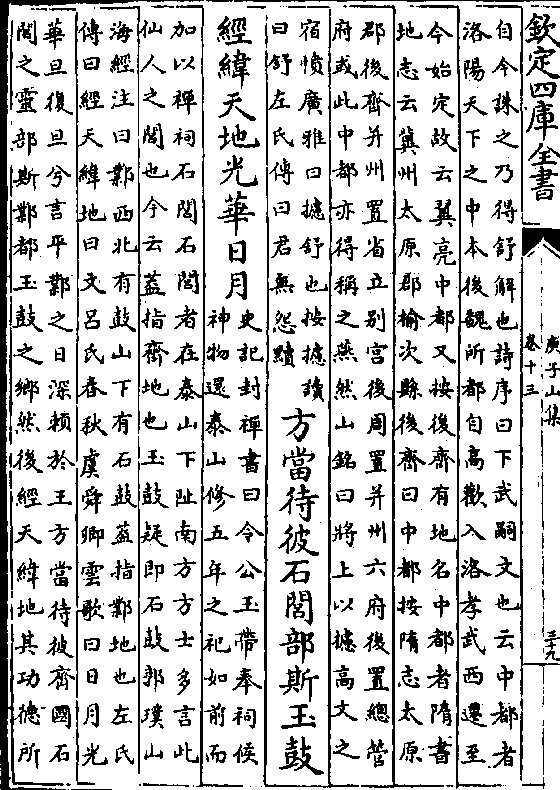 欽定四庫全書
庾子山集
卷十三
三十九
自今誅之乃得舒解也詩序曰下武嗣文也云中都者
洛陽天下之中本後魏所都自高歡入洛孝武西遷至
今始定故云翼亮中都又按後齊有地名中都者隋書
地志云冀州太原郡榆次縣後齊曰中都按隋志太原
郡後齊并州置省立别宫後周置并州六府後置總管
府或此中都亦得稱之燕然山銘曰將上以攄高文之
宿憤廣雅曰攄舒也按攄讀
曰舒左氏傳曰君無怨讟
方當待彼石閭部斯玉鼓
經緯天地光華日月
史記封禪書曰令公玉帶奉祠候
神物還泰山修五年之祀如前而
加以禪祠石閭石閭者在泰山下阯南方方士多言此
仙人之閭也今云蓋指齊地也玉鼓疑即石鼓郭璞山
海經注曰鄴西北有鼓山下有石鼓蓋指鄴地也左氏
傳曰經天緯地曰文吕氏春秋虞舜卿雲歌曰日月光
華旦復旦兮言平鄴之日深賴於王方當待彼齊國石
閭之靈部斯鄴都玉鼓之鄉然後經天緯地其功德所